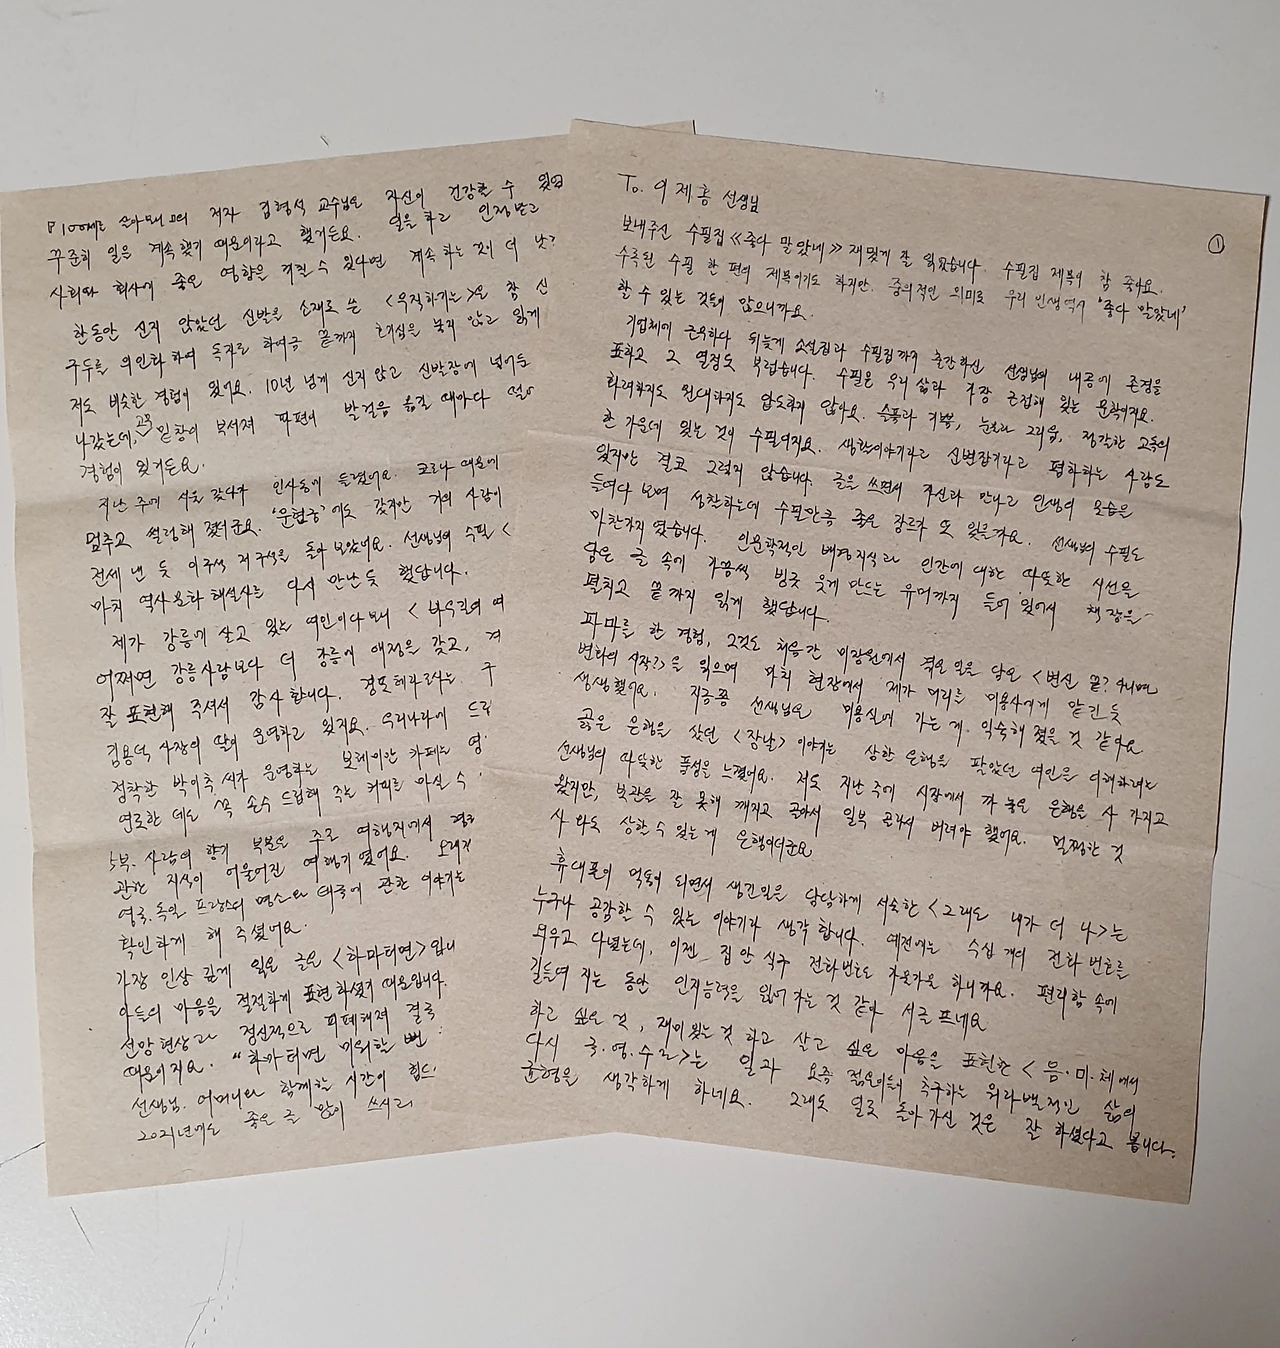 ①
To. 이제홍 선생님
보내주신 수필집 ≪좋다 말았네≫ 재밌게 잘 읽었습니다. 수필집 제목이 참 좋아요.
수록된 수필 한 편의 제목이기도 하지만. 중의적인 의미로 우리 인생역시 '좋다 말았네'
할 수 있는 것들이 많으니까요.
기업체에 근무하다 뒤늦게 소설집과 수필집까지 출간하신 선생님의 내공에 존경을
표하고 그 열정도 부럽습니다. 수필은 우리 삶과 가장 근접해 있는 문학이지요.
화려하지도 원대하지도 압도하지 않아요. 슬픔과 기쁨, 눈물과 그리움, 정갈한 고독의
한 가운데 있는 것이 수필이지요. 생활이야기라고 신변잡기라고 폄하하는 사람도
있지만 결코 그렇지 않습니다. 글을 쓰면서 자신과 만나고 인생의 모습을
들여다 보며 성찰하는데 수필만큼 좋은 장르가 또 있을까요. 선생님의 수필도
마찬가지였습니다. 인문학적인 배경지식과 인간에 대한 따뜻한 시선을
담은 글 속에 가끔씩 빙긋 웃게 만드는 유머까지 들어 있어서 책장을
펼치고 끝까지 읽게 했답니다.
파마를 한 경험, 그것도 처음간 미장원에서 겪은 일을 담은 <변신 끝? 아니면
변화의 시작?>을 읽으며 마치 현장에서 제가 머리를 미용사에게 맡긴 듯
생생했어요. 지금쯤 선생님은 미용실에 가는 게 익숙해 졌을 것 같아요
곯은 은행을 샀던 <장날> 이야기는 상한 은행을 팔았던 여인을 이해하려는
선생님의 따뜻한 품성을 느꼈어요. 저도 지난 주에 시장에서 까 놓은 은행을 사 가지고
왔지만, 보관을 잘 못해 깨지고 곯아서 일부 골라서 버려야 했어요. 멀쩡한 것
사 와도 상할 수 있는 게 은행이더군요
휴대폰이 먹통이 되면서 생긴일을 담담하게 서술한 <그래도 내가 더 나>는
누구나 공감할 수 있는 이야기라 생각합니다. 예전에는 수십 개의 전화 번호를
외우고 다녔는데, 이젠 집안 식구 전화번호도 가물가물 하니까요. 편리함 속에
길들여 지는 동안 인지능력을 잃어 가는 것 같아 서글프네요
하고 싶은 것, 재미있는 것 하고 살고 싶은 마음을 표현한 <음·미·체에서
다시 국·영·수로>는 일과 요즘 젊은이들이 추구하는 워라밸적인 삶의
균형을 생각하게 하네요. 그래도 일로 돌아가신 것은 잘 하셨다고 봅니다.
『100세를 살아보니』의 저자 김형석 교수님은 자신이 건강할 수 있었
꾸준히 일을 계속했기 때문이라고 했거든요. 일을 하고 인정받고
사회와 회사에 좋은 영향을 끼칠 수 있다면 계속 하는 것이 더 낫
한동안 신지 않았던 신발을 소재로 쓴 <우직하기는>은 참 신
구두를 의인화 하여 독자로 하여금 끝까지 호기심을 놓지 않고 읽게
저도 비슷한 경험이 있어요. 10년 넘게 신지 않고 신발장에 넣어둔
나갔는데, 고무 밑창이 부서져 파편이 발걸음 옮길 때마다 떨어
경험이 있거든요.
지난 주에 서울 갔다가 인사동에 들렸어요. 코로나 때문에
멈추고 썰렁해 졌더군요. '운현궁'에도 갔지만 거의 사람이
전세 낸 듯 이구석 저구석을 돌아 보았네요. 선생님의 수필 <
마치 역사문화 해설사를 다시 만난듯 했답니다.
제가 강릉에 살고 있는 여인이다보니 <바우길의 여
어쩌면 강릉사람보다 더 강릉에 애정을 갖고,
잘 표현해 주셔서 감사합니다. 경포테라로사는 구
김용덕 사장의 딸이 운영하고 있지요. 우리나라에 드립
정착한 박이추 씨가 운영하는 보헤미안 카페는
연로한 데도 꼭 손수 드립해 주는 커피를 마실 수
5부. 사람의 향기 부분은 주로 여행지에서
관한 지식이 어울어진 여행기였어요. 오래전
영국, 독일 프랑스의 명소와 태국에 관한 이야기는
확인하게 해 주셨어요.
가장 인상 깊게 읽은 글은 <하마터면>입니
아들의 마음을 절절하게 표현하셨기 때문입니다.
섬망현상과 정신적으로 피폐해져 결국
때문이지요. "하마터면 미워할 뻔
선생님. 어머니와 함께할 시간이 힘드
2021년에도 좋은 글 많이 쓰시리